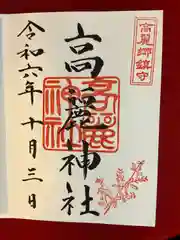 高麗郷鎮守
高麗神社
令和六年十月三日